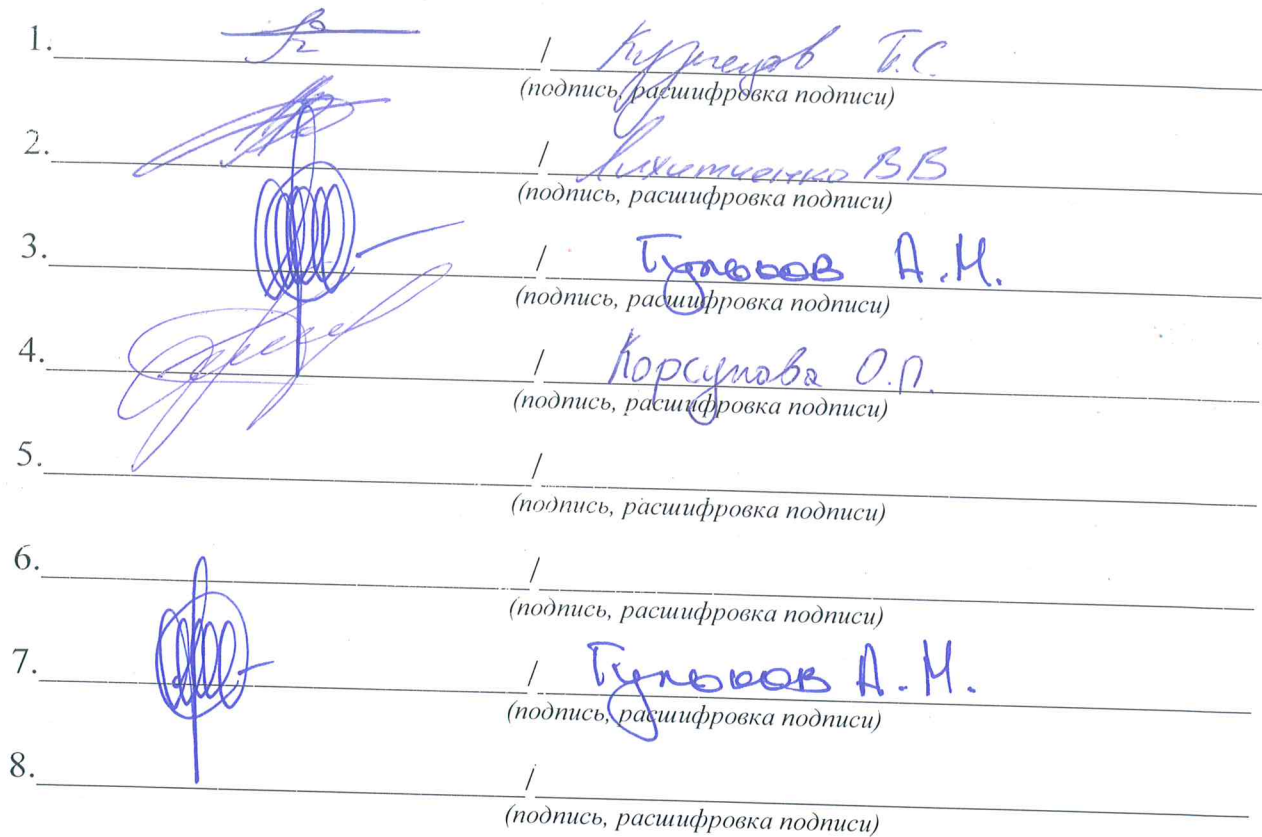 1. / Т.С.
(подпись, расшифровка подписи)
2. / ВВ
(подпись, расшифровка подписи)
3. / А.М.
(подпись, расшифровка подписи)
4. / Корсунова О.П.
(подпись, расшифровка подписи)
5. /
(подпись, расшифровка подписи)
6. /
(подпись, расшифровка подписи)
7. / А.М.
(подпись, расшифровка подписи)
8. /
(подпись, расшифровка подписи)